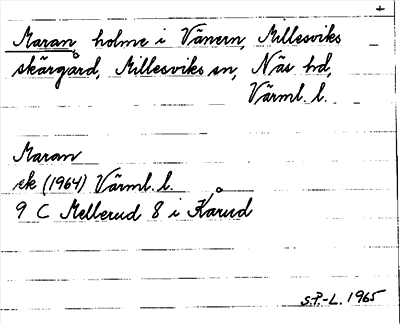 +
Maran, holme i Vänern, Millesviks
skärgård, Millesviks sn, Näs hd,
Värml. l.
Maran
ek (1964) Värml. l.
9 C Mellerud 8 i Kårud
S.P.-L. 1965